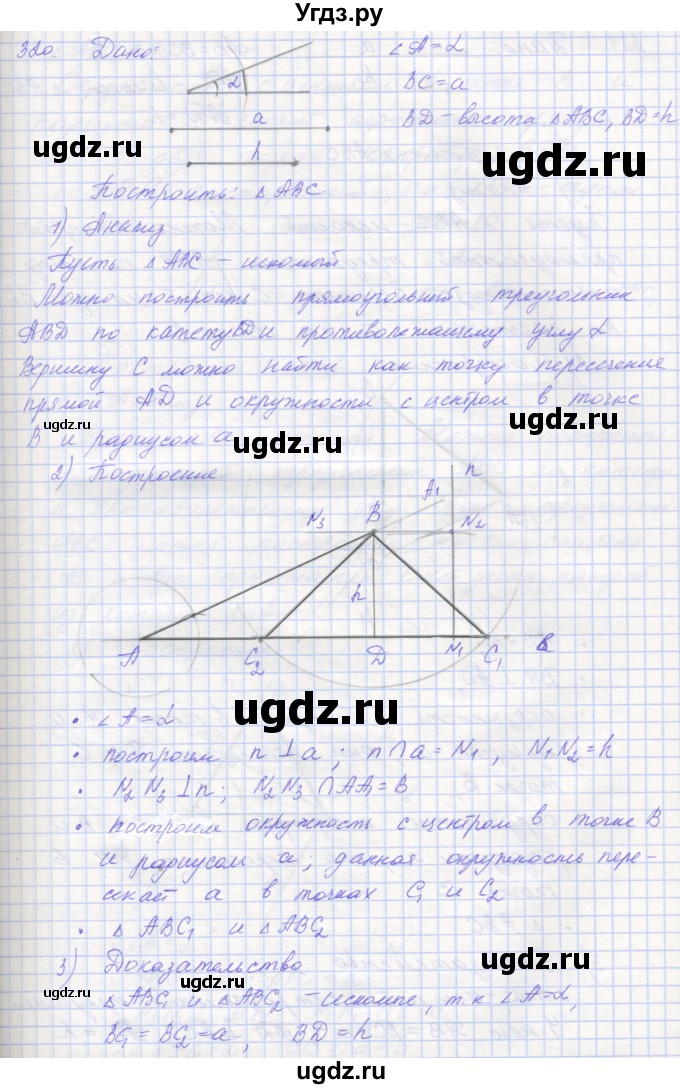 Угдз.ру
320. Дано:
∠A = α
α
BC = a
a
BD – высота △ABC, BD = h
h
ugdz.ru
ugdz.ru
Построить: △ABC
1) Анализ
Пусть △ABC – искомый.
ugdz.ru
ugdz.ru
Можно построить прямоугольный треугольник
ABD по катету BD и противолежащему углу α
Вершину C можно найти как точку пересечения
прямой AD и окружности с центром в точке
ugdz.ru
B и радиусом a
ugdz.ru
2) Построение
n
A₁
N₃ B N₂
h
A C₂ D N₁ C₁ a
ugdz.ru
• ∠A = α
• построим n ⊥ a; n ∩ a = N₁, N₁N₂ = h
ugdz.ru
• N₂N₃ ⊥ n; N₂N₃ ∩ AA₁ = B
• построим окружность с центром в точке B
и радиусом a; данная окружность пере-
секает a в точках C₁ и C₂
• △ABC₁ и △ABC₂
ugdz.ru
ugdz.ru
3) Доказательство
△ABC₁ и △ABC₂ – искомые, т.к. ∠A = α,
BC₁ = BC₂ = a, BD = h
ugdz.ru